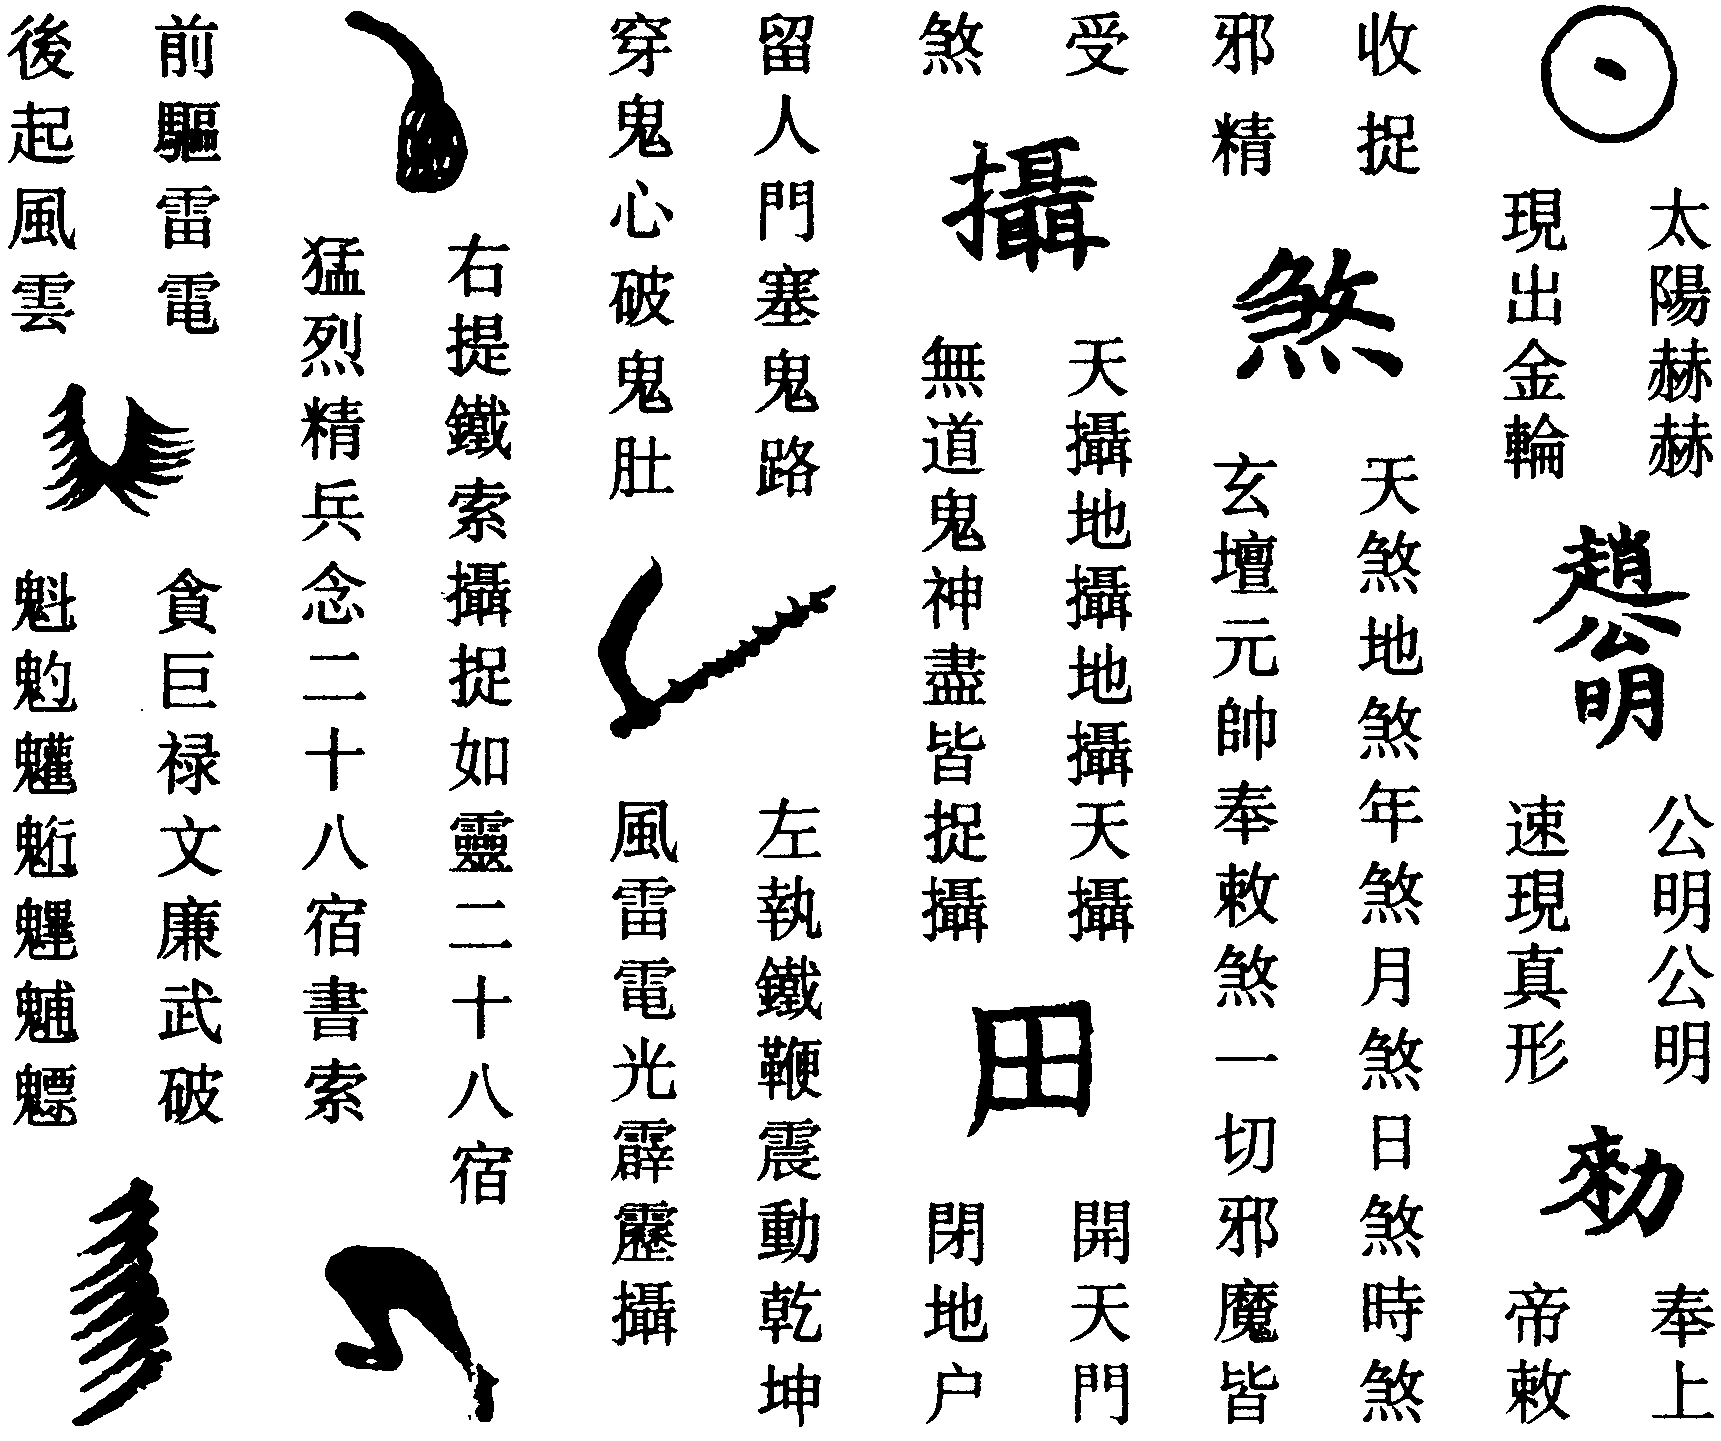 太陽赫赫
現出金輪
趙公明
公明公明
速現真形
勑
奉上
帝敕
收捉
邪精
煞
天煞地煞年煞月煞日煞時煞
玄壇元帥奉敕煞一切邪魔皆
受
煞
攝
天攝地攝地攝天攝
無道鬼神盡皆捉攝
田
開天門
閉地户
留人門塞鬼路
穿鬼心破鬼肚
左執鐵鞭震動乾坤
風雷電光霹靂攝
右提鐵索攝捉如靈二十八宿
猛烈精兵念二十八宿書索
前驅雷電
後起風雲
貪巨禄文廉武破
魁𩲃𩵄䰢魓𩳐魒